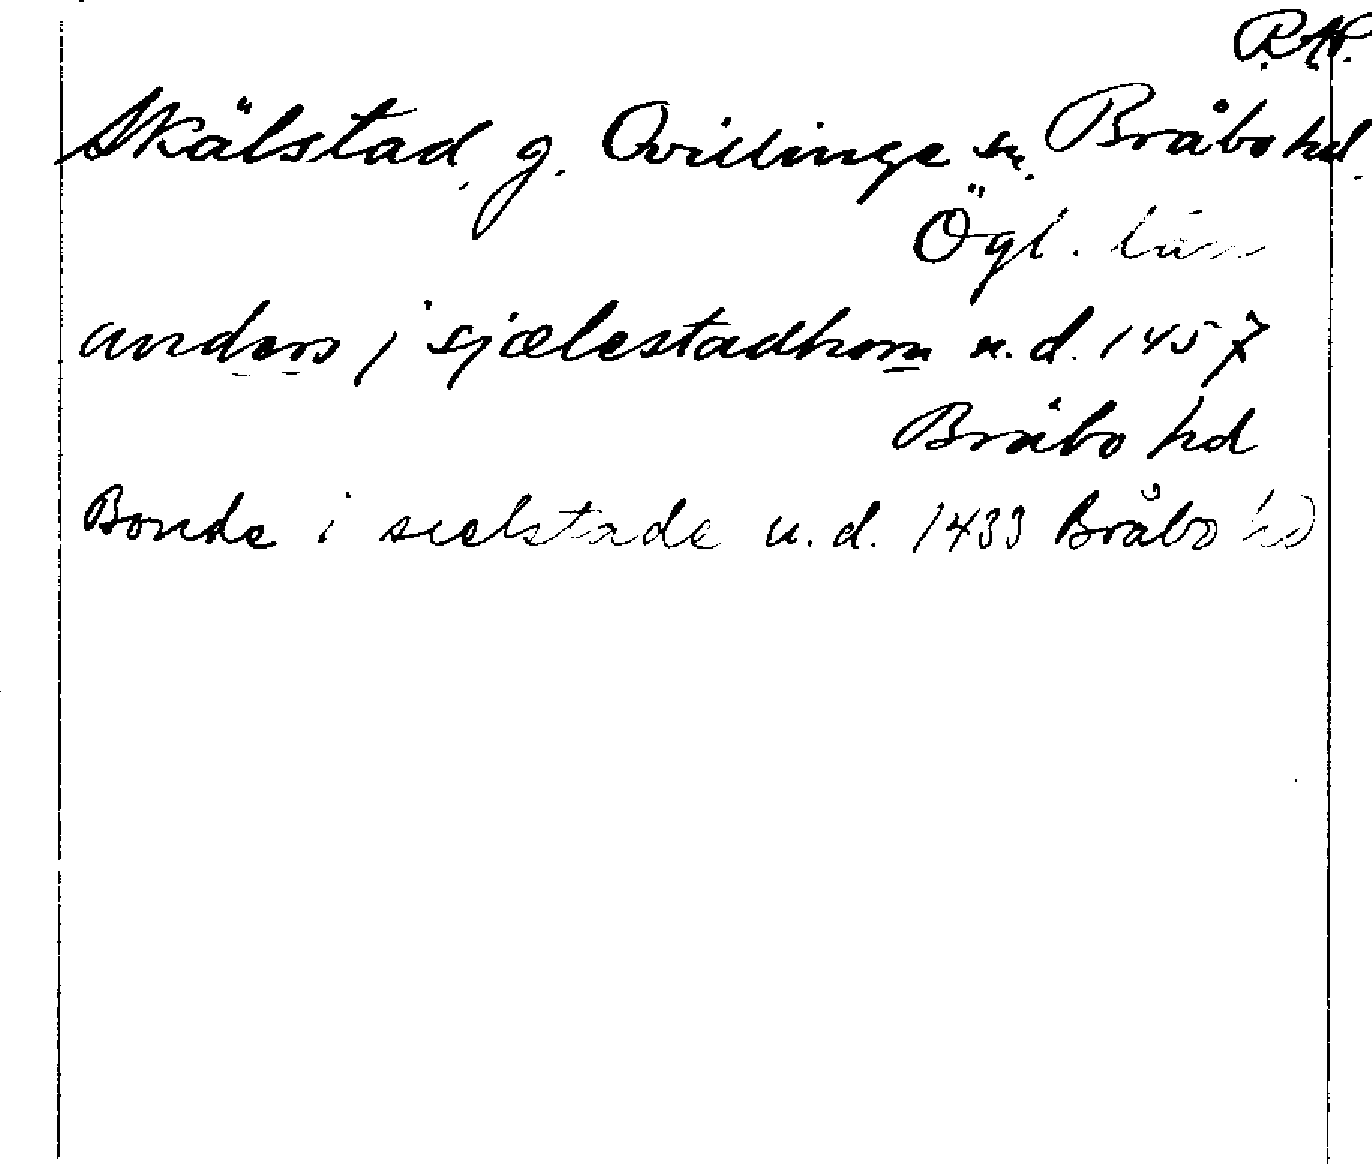 R.A.P.
Skälstad, g. Qvillinge sn. Bråbo hd.
Ögl. län
anders j sjælestadhom u.d. 1457
Bråbo hd
Bonde i sielstade u.d. 1433 Bråbo hd